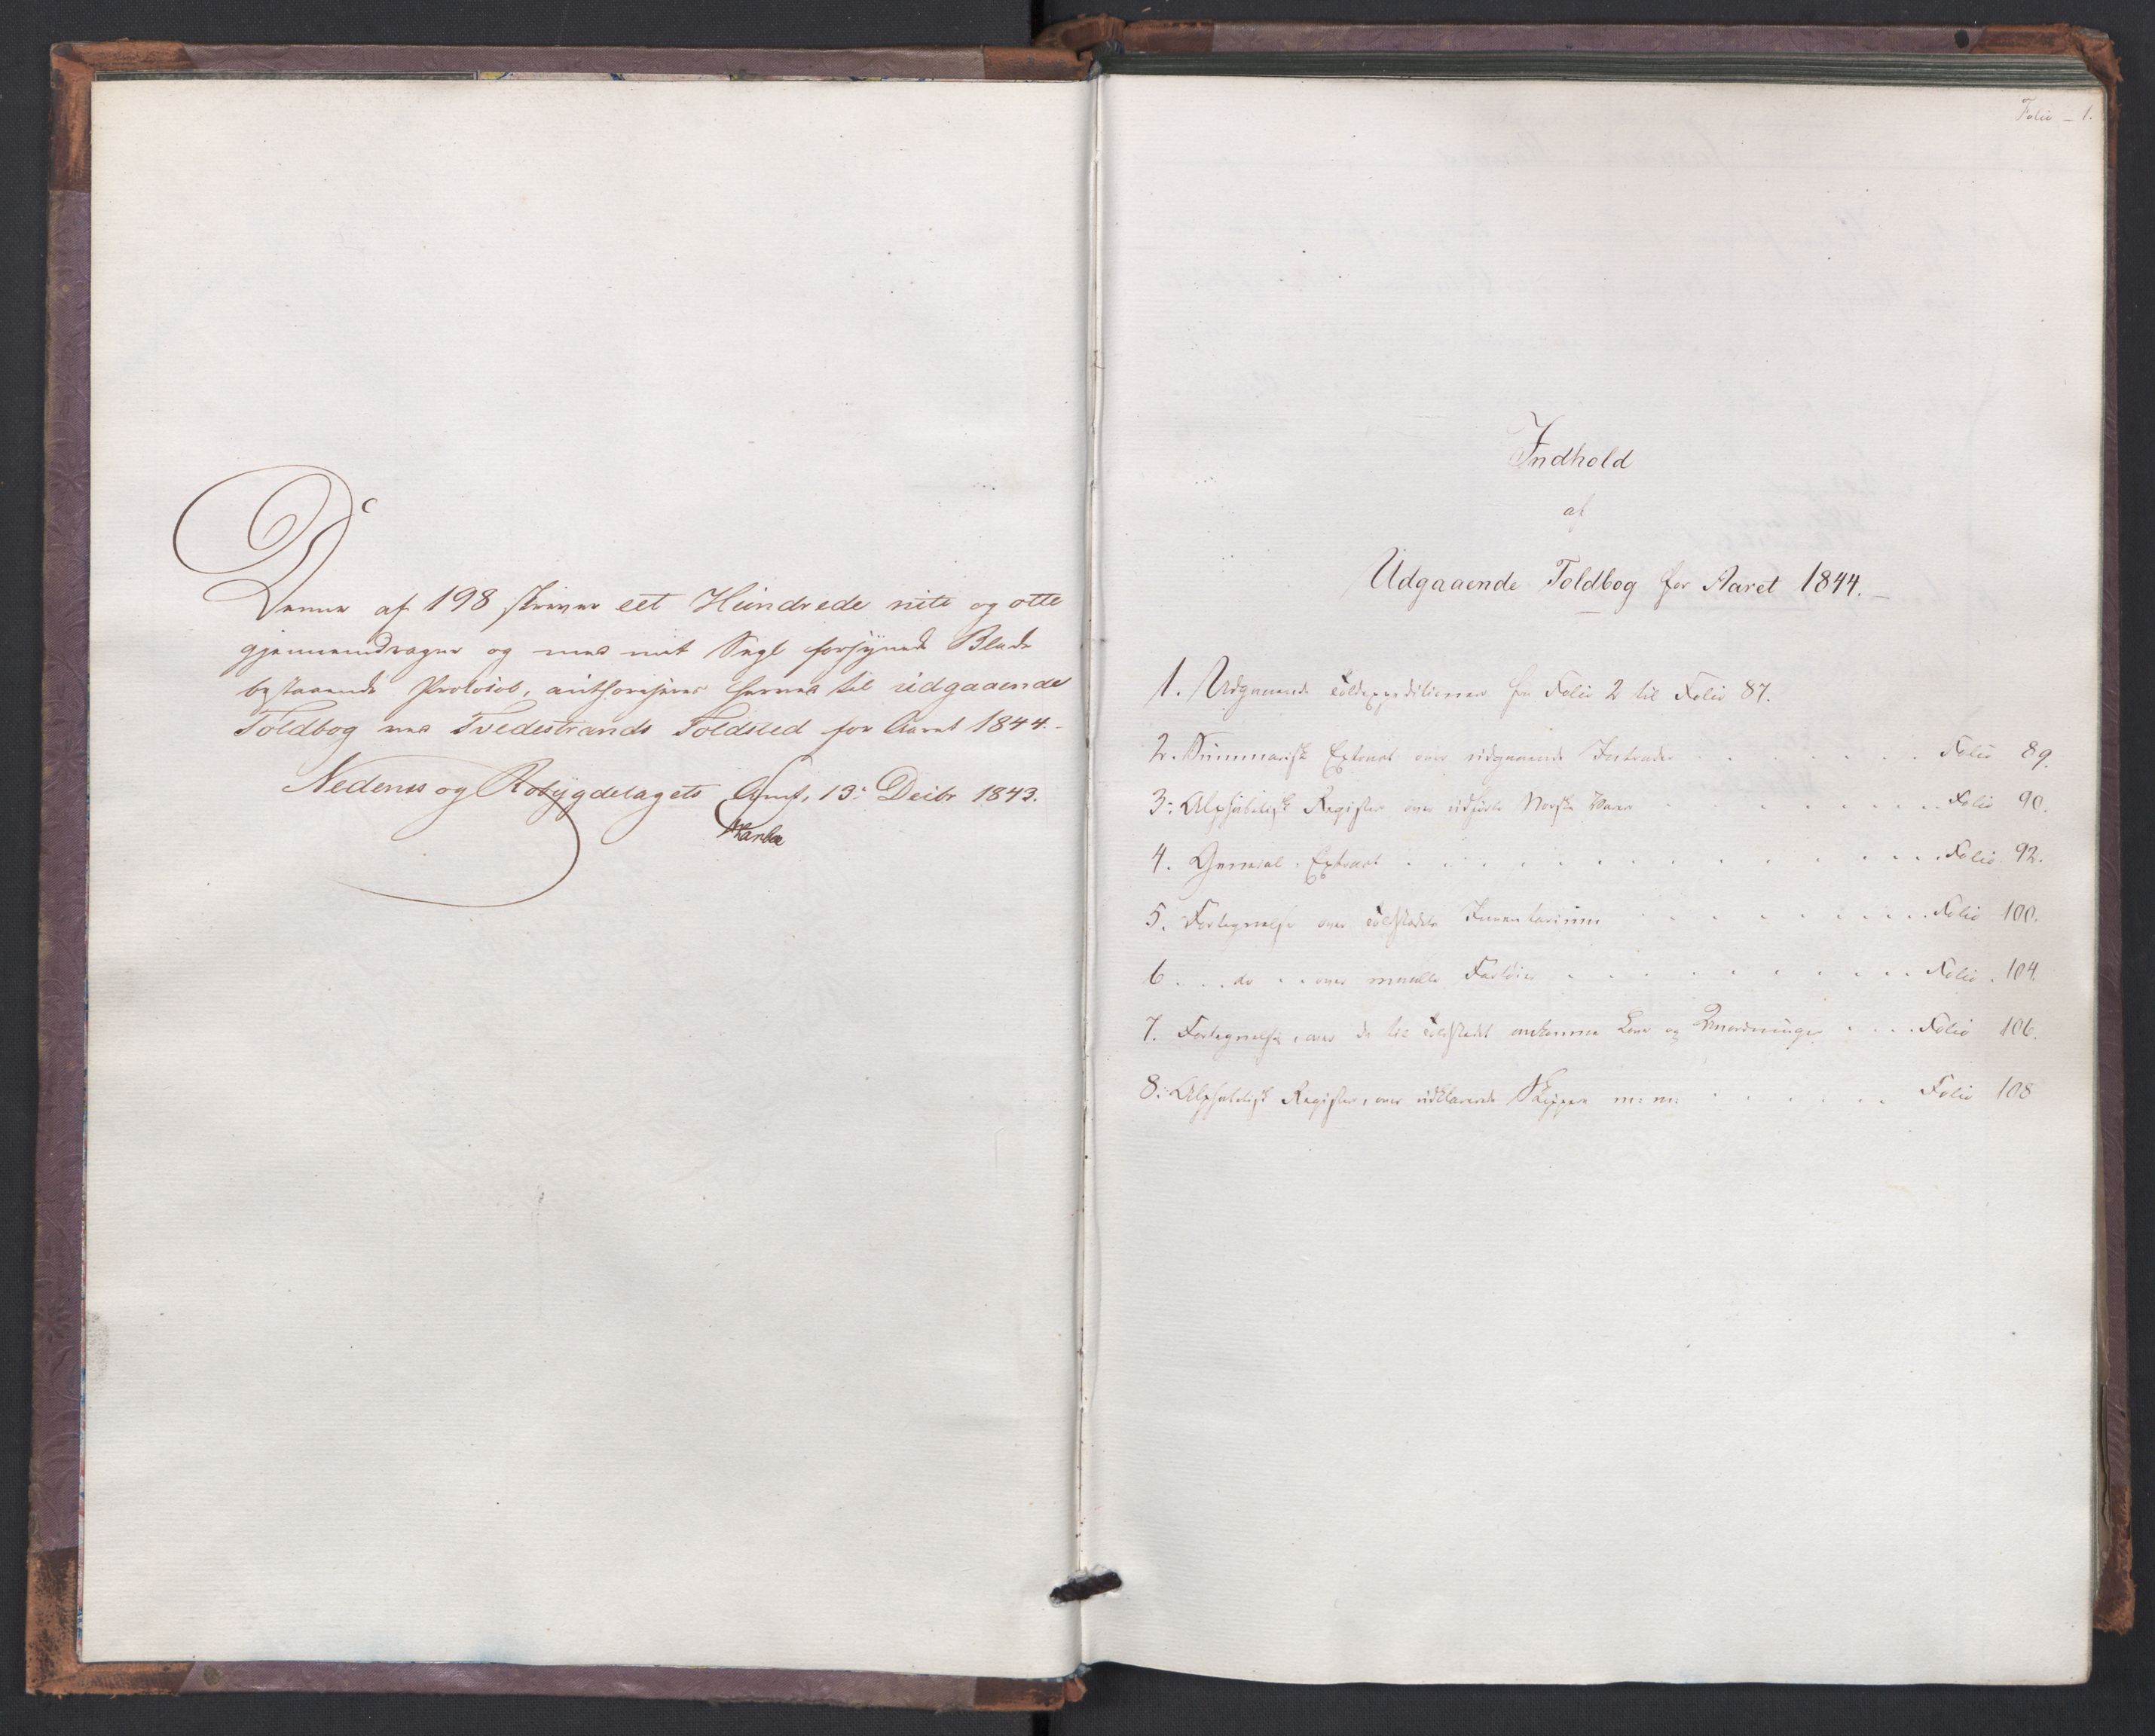 Denne af 198 skriver eet Hundrede niti og otte
gjennemdragne og med mit Segl forsÿnede Blade
bestaaende Protocol, authoriseres herved til udgaaende
Toldbog ved Tvedestrands Toldsted for Aaret 1844.-
Nedenes og Robÿgdelagets Amt, 13: Decbr 1843.
Folio - 1.
Indhold
af
Udgaaende Toldbog for Aaret 1844.-
1. Udgaaende Toldexpeditioner fra Folio 2 til Folio 87.
2. Summarisk Extract over udgaaende Intrader . . . . . . . Folio 89.
3: Alphabetisk Register over udførte Norske Varer . . . . . . Folio 90.
4. General-Extract . . . . . . . . . . . . . . Folio 92.
5. Fortegnelse over Toldstedets Inventarium . . . . . . . . . Folio 100.
6 . . . do . . over maalte Fartøier . . . . . . . . . . Folio . 104.
7. Fortegnelse, over de til Toldstedet ankomne Love og Anordninger . . . . Folio 106.
8: Alphabetisk Register, over udklarerede Skippere m: m: . . . . . . Folio 108